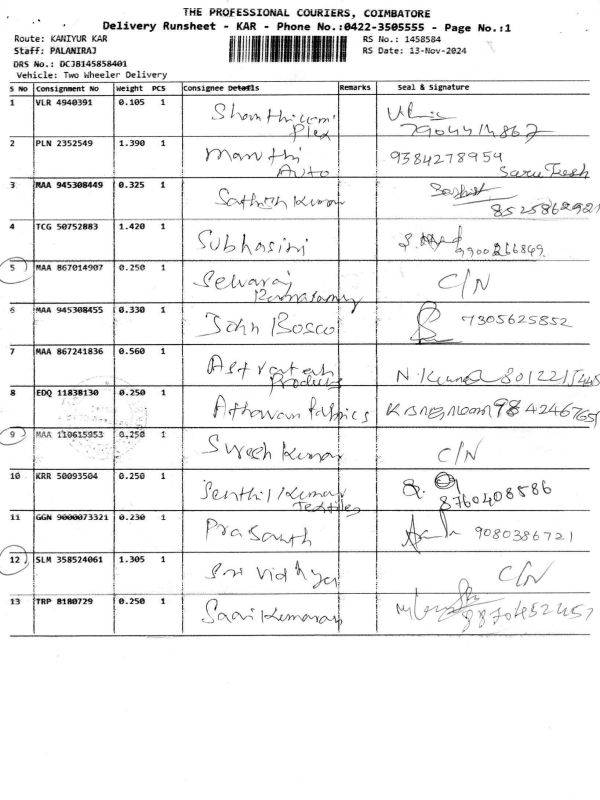 THE PROFESSIONAL COURIERS, COIMBATORE
Delivery Runsheet - KAR - Phone No.:0422-3505555 - Page No.:1
Route: KANIYUR KAR RS No.: 1458584
Staff: PALANIRAJ RS Date: 13-Nov-2024
DRS No.: DCJB145858401
Vehicle: Two Wheeler Delivery
S No Consignment No Weight PCS Consignee Details Remarks Seal & Signature
1 VLR 4940391 0.105 1 Shanthi
Plex
2 PLN 2352549 1.390 1 Maruthi 9384278959
Auto
3 MAA 945308449 0.325 1 Sathish Kumar
8525862921
4 TCG 50752883 1.420 1 Subhasini
9900266849
5 MAA 867014907 0.250 1 Selvaraj C/N
6 MAA 945308455 0.330 1 John Bosco 7305625852
7 MAA 867241836 0.560 1
Products N. Kumar
8 EDQ 11838130 0.250 1 Athavan Fabrics
9 MAA 110615953 0.250 1 Suresh Kumar C/N
10 KRR 50093504 0.250 1 Senthil Kumar
Textiles 8760408586
11 GGN 9000073321 0.230 1 Prasanth 9080386721
12 SLM 358524061 1.305 1 Sri Vidhya C/N
13 TRP 8180729 0.250 1
8870452457